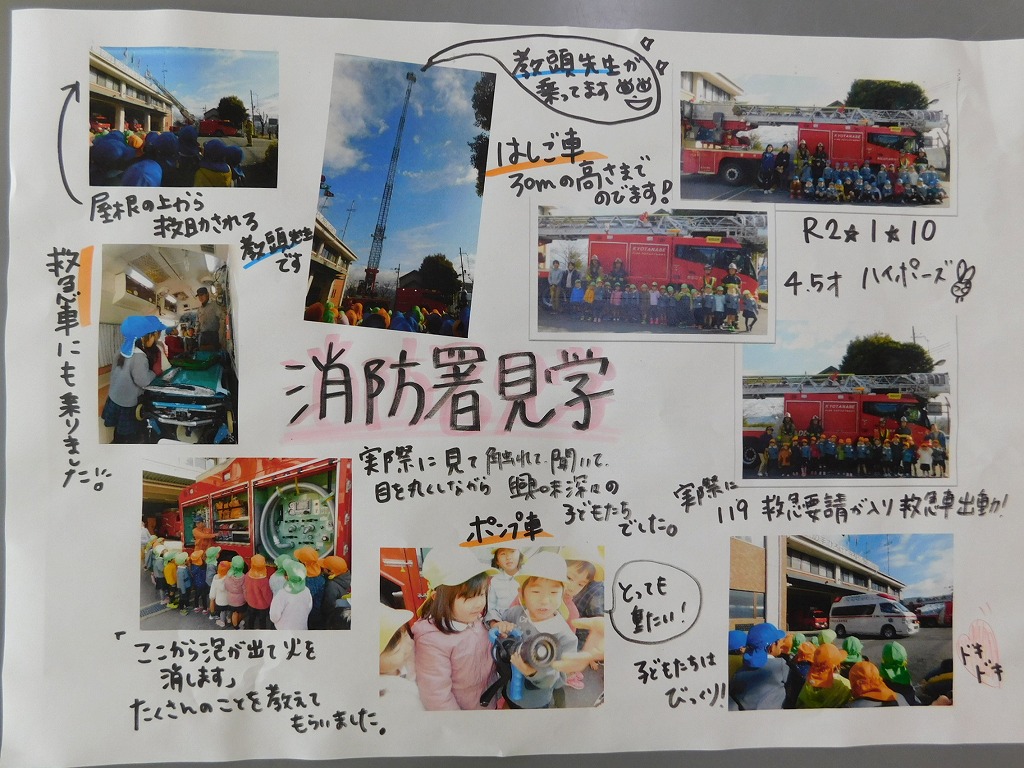 教頭先生が
乗ってます
はしご車
30mの高さまで
のびます!
屋根の上から
救助される
教頭先生
です
R2★1★10
4.5才 ハイポーズ
救急車にも乗りました。
消防署見学
実際に見て触れて聞いて
目を丸くしながら 興味深々の
子どもたち
でした。
KYOTANABE
KYOTANABE
KYOTANABE
実際に
119 救急要請が入り救急車出動!
ポンプ車
とっても
重たい!
子どもたちは
びっくり!
「ここから泡が出て火を
消します」
たくさんのことを教えて
もらいました。
ドキ
ドキ